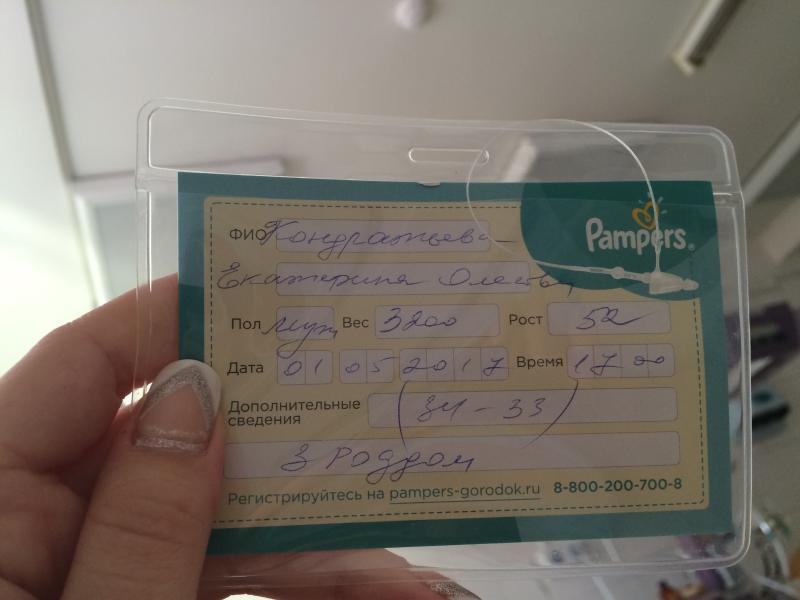 Pampers
ФИО Кондратьева
Екатерина Олеговн
Пол муж Вес 3200 Рост 52
Дата 01 05 2017 Время 17 00
Дополнительные сведения (34-33)
3 роддом
Регистрируйтесь на pampers-gorodok.ru 8-800-200-700-8